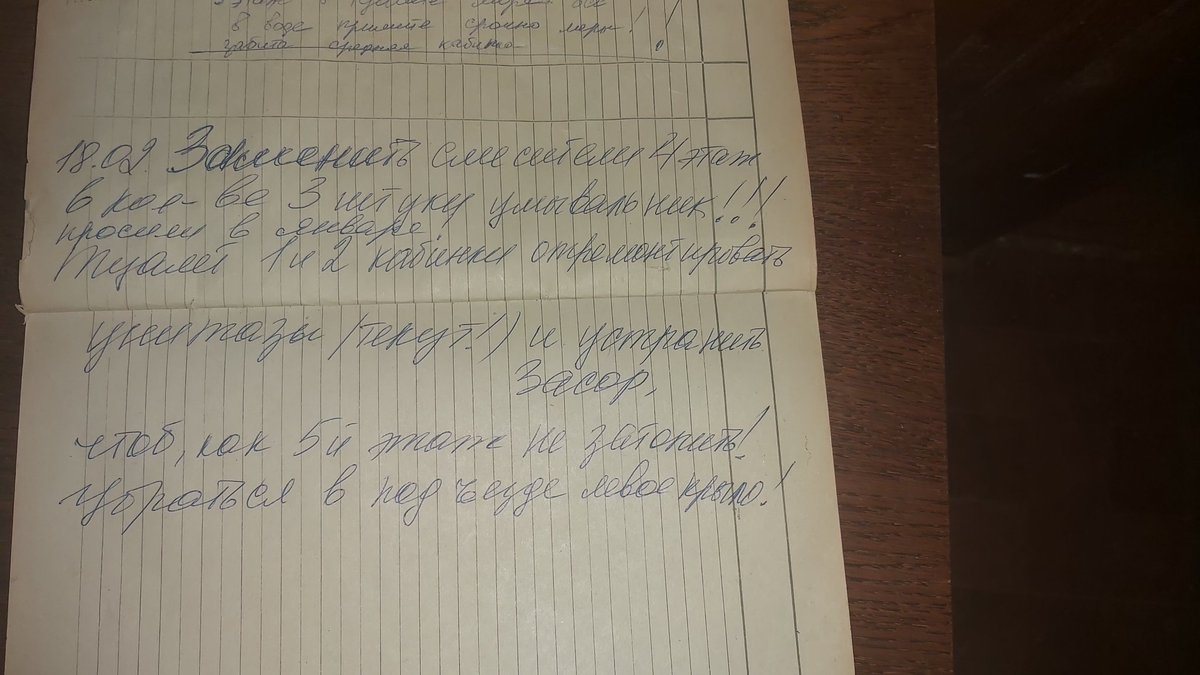 5 этаж все
в воде примите срочно меры!
забита средняя кабинка!
18.02. Заменить смесители 4 этаж
в кол-ве 3 штуки умывальник!!!
просили в январе
Туалет 1 и 2 кабинки отремонтировать
унитазы (текут!) и устранить
засор,
чтоб, как 5й этаж не затопить!
Убраться в подъезде левое крыло!